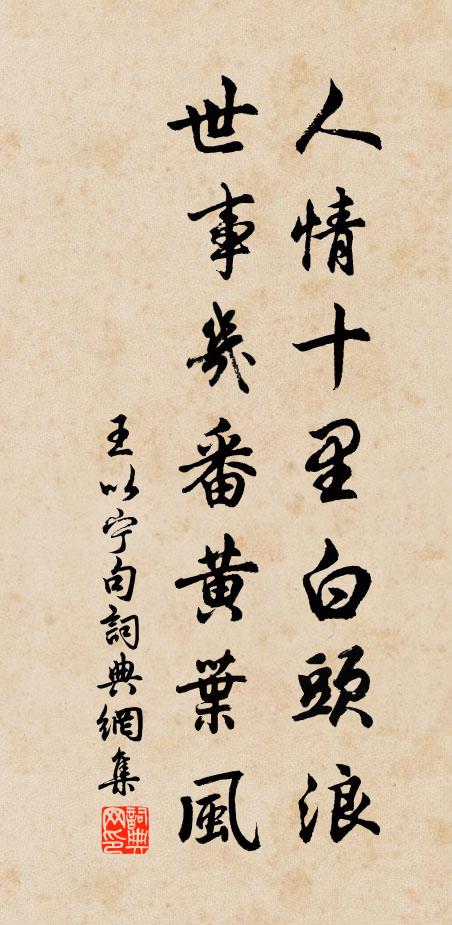 人情十里白頭浪
世事幾番黄葉風
王以宁句詞典網集
詞典网印